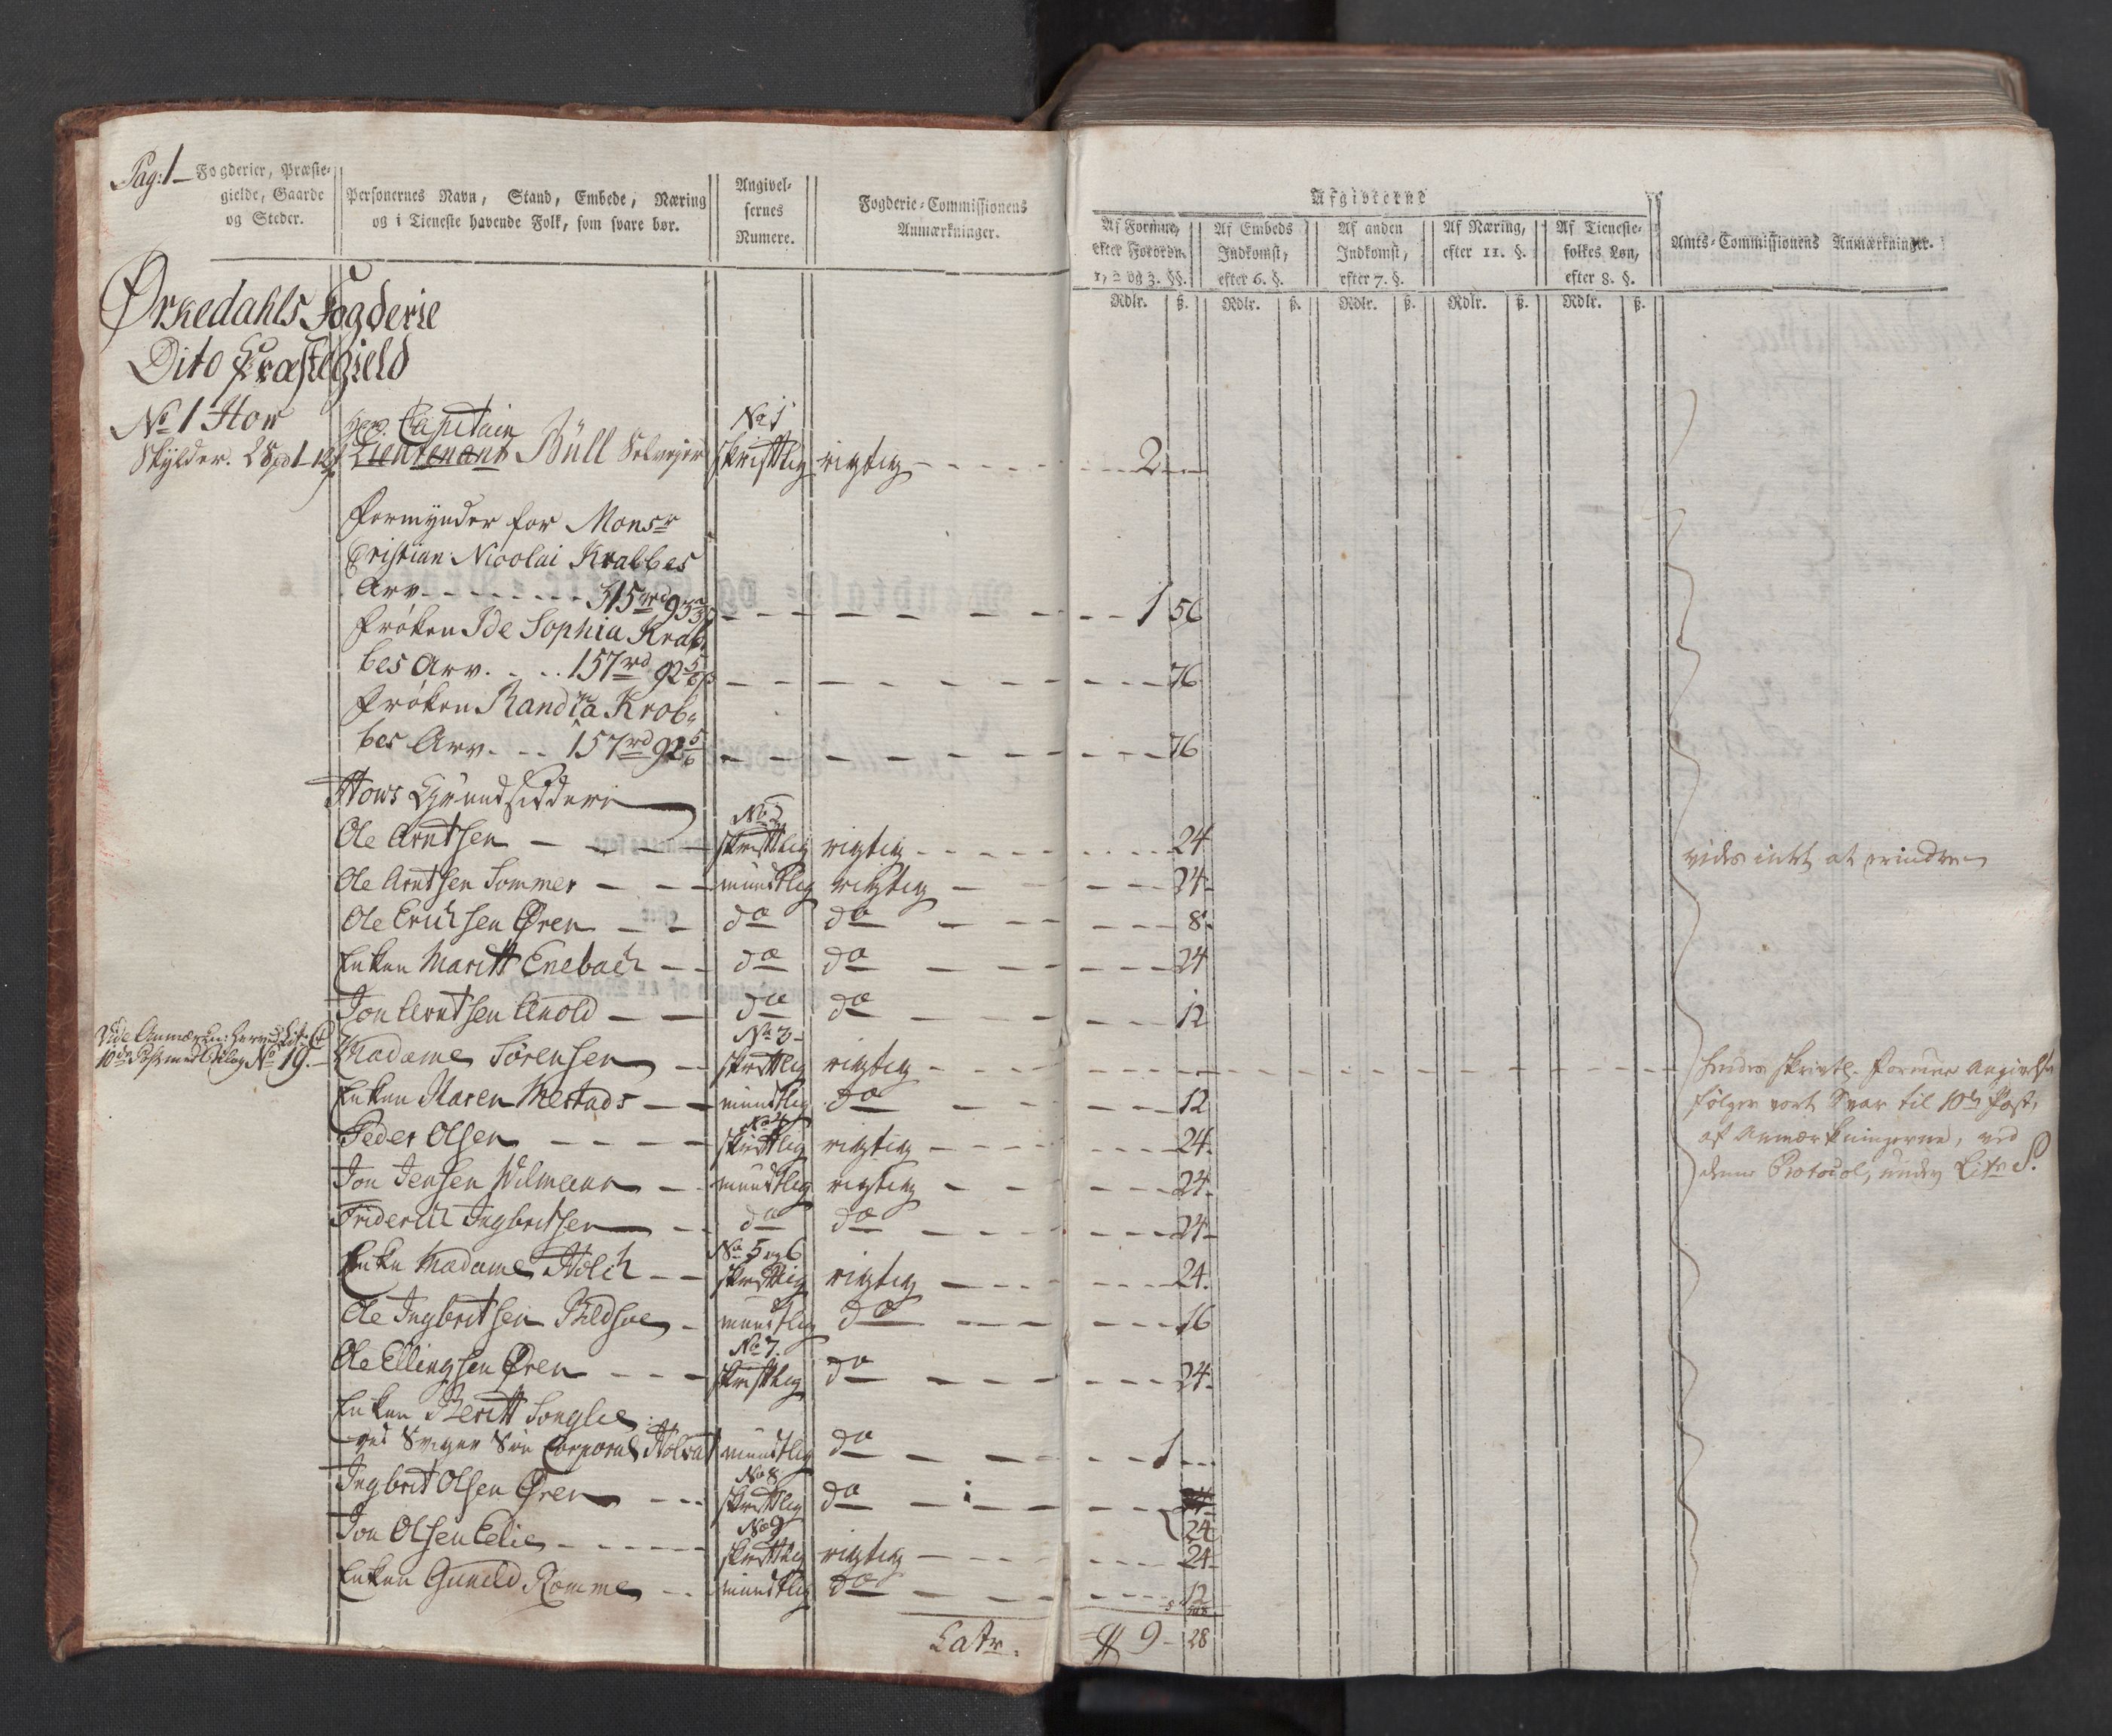 Pag: 1
Fogderier, Præste-
gielde, Gaarde
og Steder.
Personernes Navn, Stand, Embede, Næring
og i Tieneste havende Folk, som svare bør.
Angivel-
sernes
Numere.
Fogderie-Commissionens
Anmærkninger.
Afgivterne
Af Formue,
efter Forordn.
1, 2 og 3. §§.
Af Embeds
Indkomst,
efter 6. §.
Af anden
Indkomst,
efter 7. §.
Af Næring,
efter 11. §.
Af Tieneste-
folkes Løn,
efter 8. §.
Amts-Commissionens Anmærkninger.
Rdlr. ß. Rdlr. ß. Rdlr. ß. Rdlr. ß. Rdlr. ß.
Ørkedahls Fogderie
Dito Præstegield
No 1 Hov
Capitain No 1
Skylder. Lieutenant Büll Selvejer skriftlig rigtig 2
Formynder for Monsr
Cristian Nicolai Krabbes
Arv 315 rd 1 56
Frøken Ide Sophia Krab-
bes Arv 157 rd 92 5/6 ß 76
Frøken Randia Krab-
bes Arv 157 rd 92 5/6 76
Hovs Grundsiddere
No 2
Ole Arntsen skriftlig rigtig 24
vides intet at erindre
Ole Arntsen Sommer mundtlig rigtig 24
Ole Erichsen Øren do do 8
Enken Maritt Enebach do do 24
Jon Arntsen do do 12
No 3
10de Post med Bilag No 19.
Madame Sørensen skriftlig rigtig
hendes skriftl. Formue Angivelse
Enken Maren Mestads mundtlig do 12
følger vort Svar til 10de Post,
No 4
Peder Olsen skriftlig rigtig 24
af Anmærkningerne, ved
denne Protocol, under Litr S.
Jon Jensen Wilmann mundtlig rigtig 24
Friderich Ingbritsen do do 24
No 5 og 6
Enke Madame Holch skriftlig rigtig 24
Ole Ingbritsen mundtlig do 16
No 7.
Ole Ellingsen Øren skriftlig do 24
Enken Beritt Songlie
ved Sviger Søn Corporal mundtlig do 1
No 8
Ingbrit Olsen Øren skriftlig do 24
No 9
Jon Olsen skriftlig rigtig 24
Enken Gunild Romme mundtlig do 12
Latr. 9 28